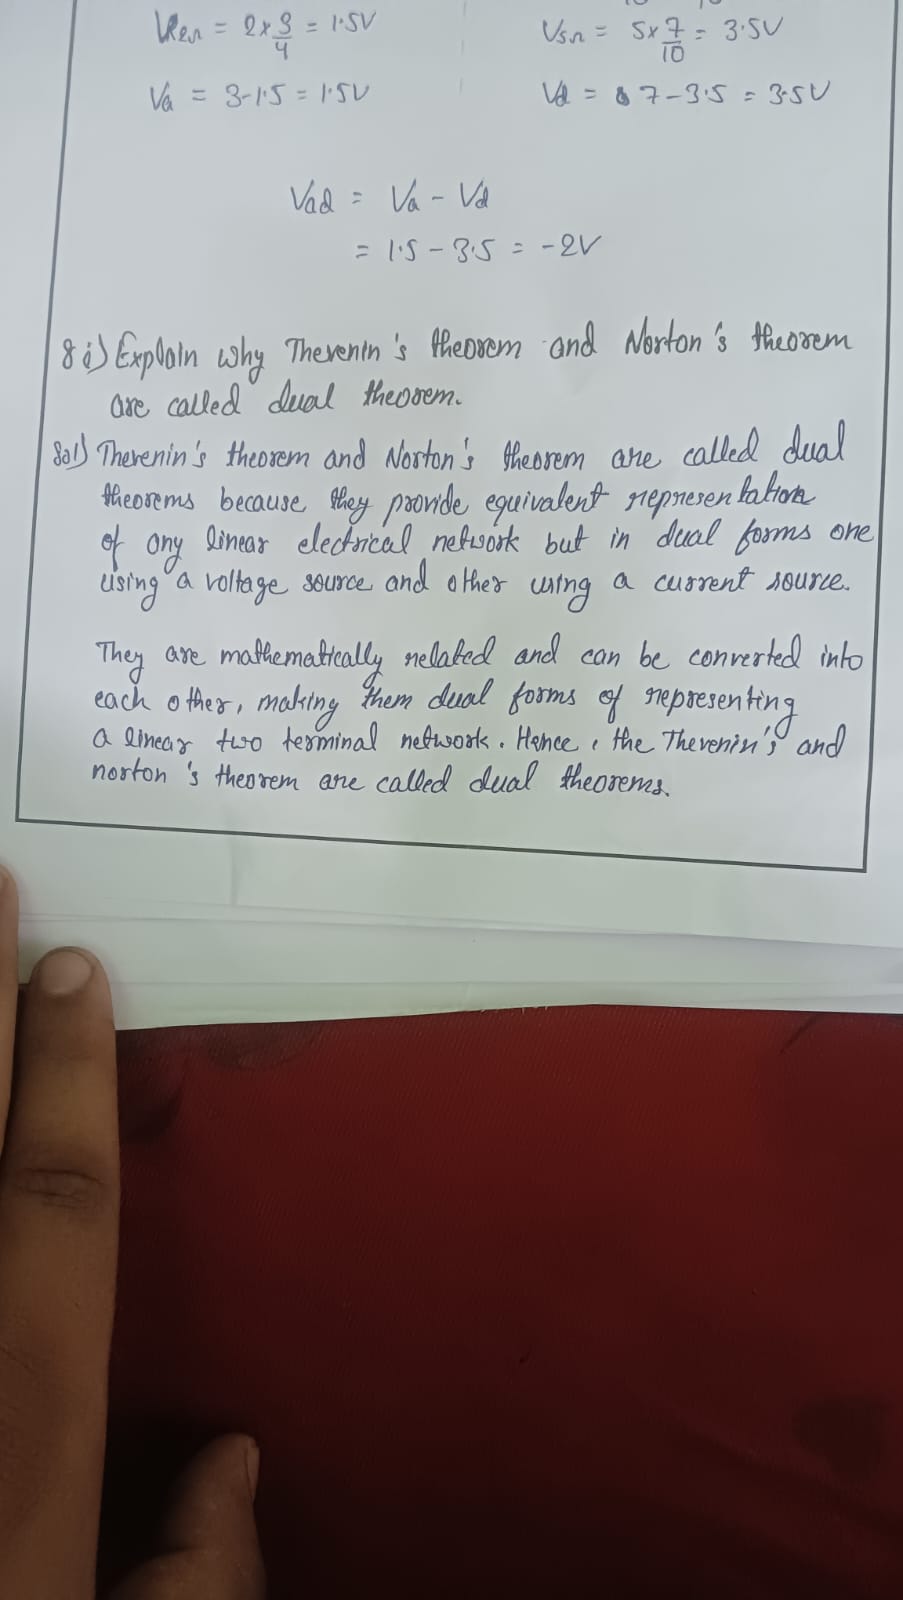 = 2 × 3/4 = 1.5V
V5Ω = 5 × 7/10 = 3.5V
Va = 3 - 1.5 = 1.5V
Vd = 7 - 3.5 = 3.5V
Vad = Va - Vd
= 1.5 - 3.5 = -2V
8 i) Explain why Thevenin's theorem and Norton's theorem
are called dual theorem.
Sol) Thevenin's theorem and Norton's theorem are called dual
theorems because they provide equivalent representation
of any linear electrical network but in dual forms one
using a voltage source and other using a current source.
They are mathematically related and can be converted into
each other, making them dual forms of representing
a linear two terminal network. Hence, the Thevenin's and
norton's theorem are called dual theorems.